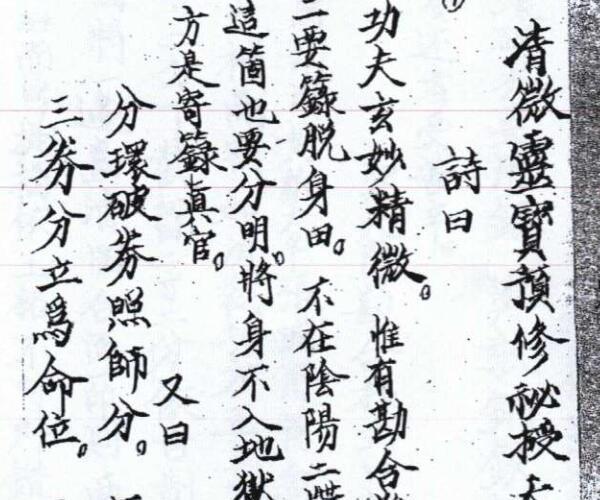 清微靈寶預修祕授
詩曰
功夫玄妙精微。惟有勘合
二要籙脫身田。不在陰陽二
這箇也要分明。將身不入地獄
方是寄籙真官。又曰
分環破券照師分。
三券分立爲命位。